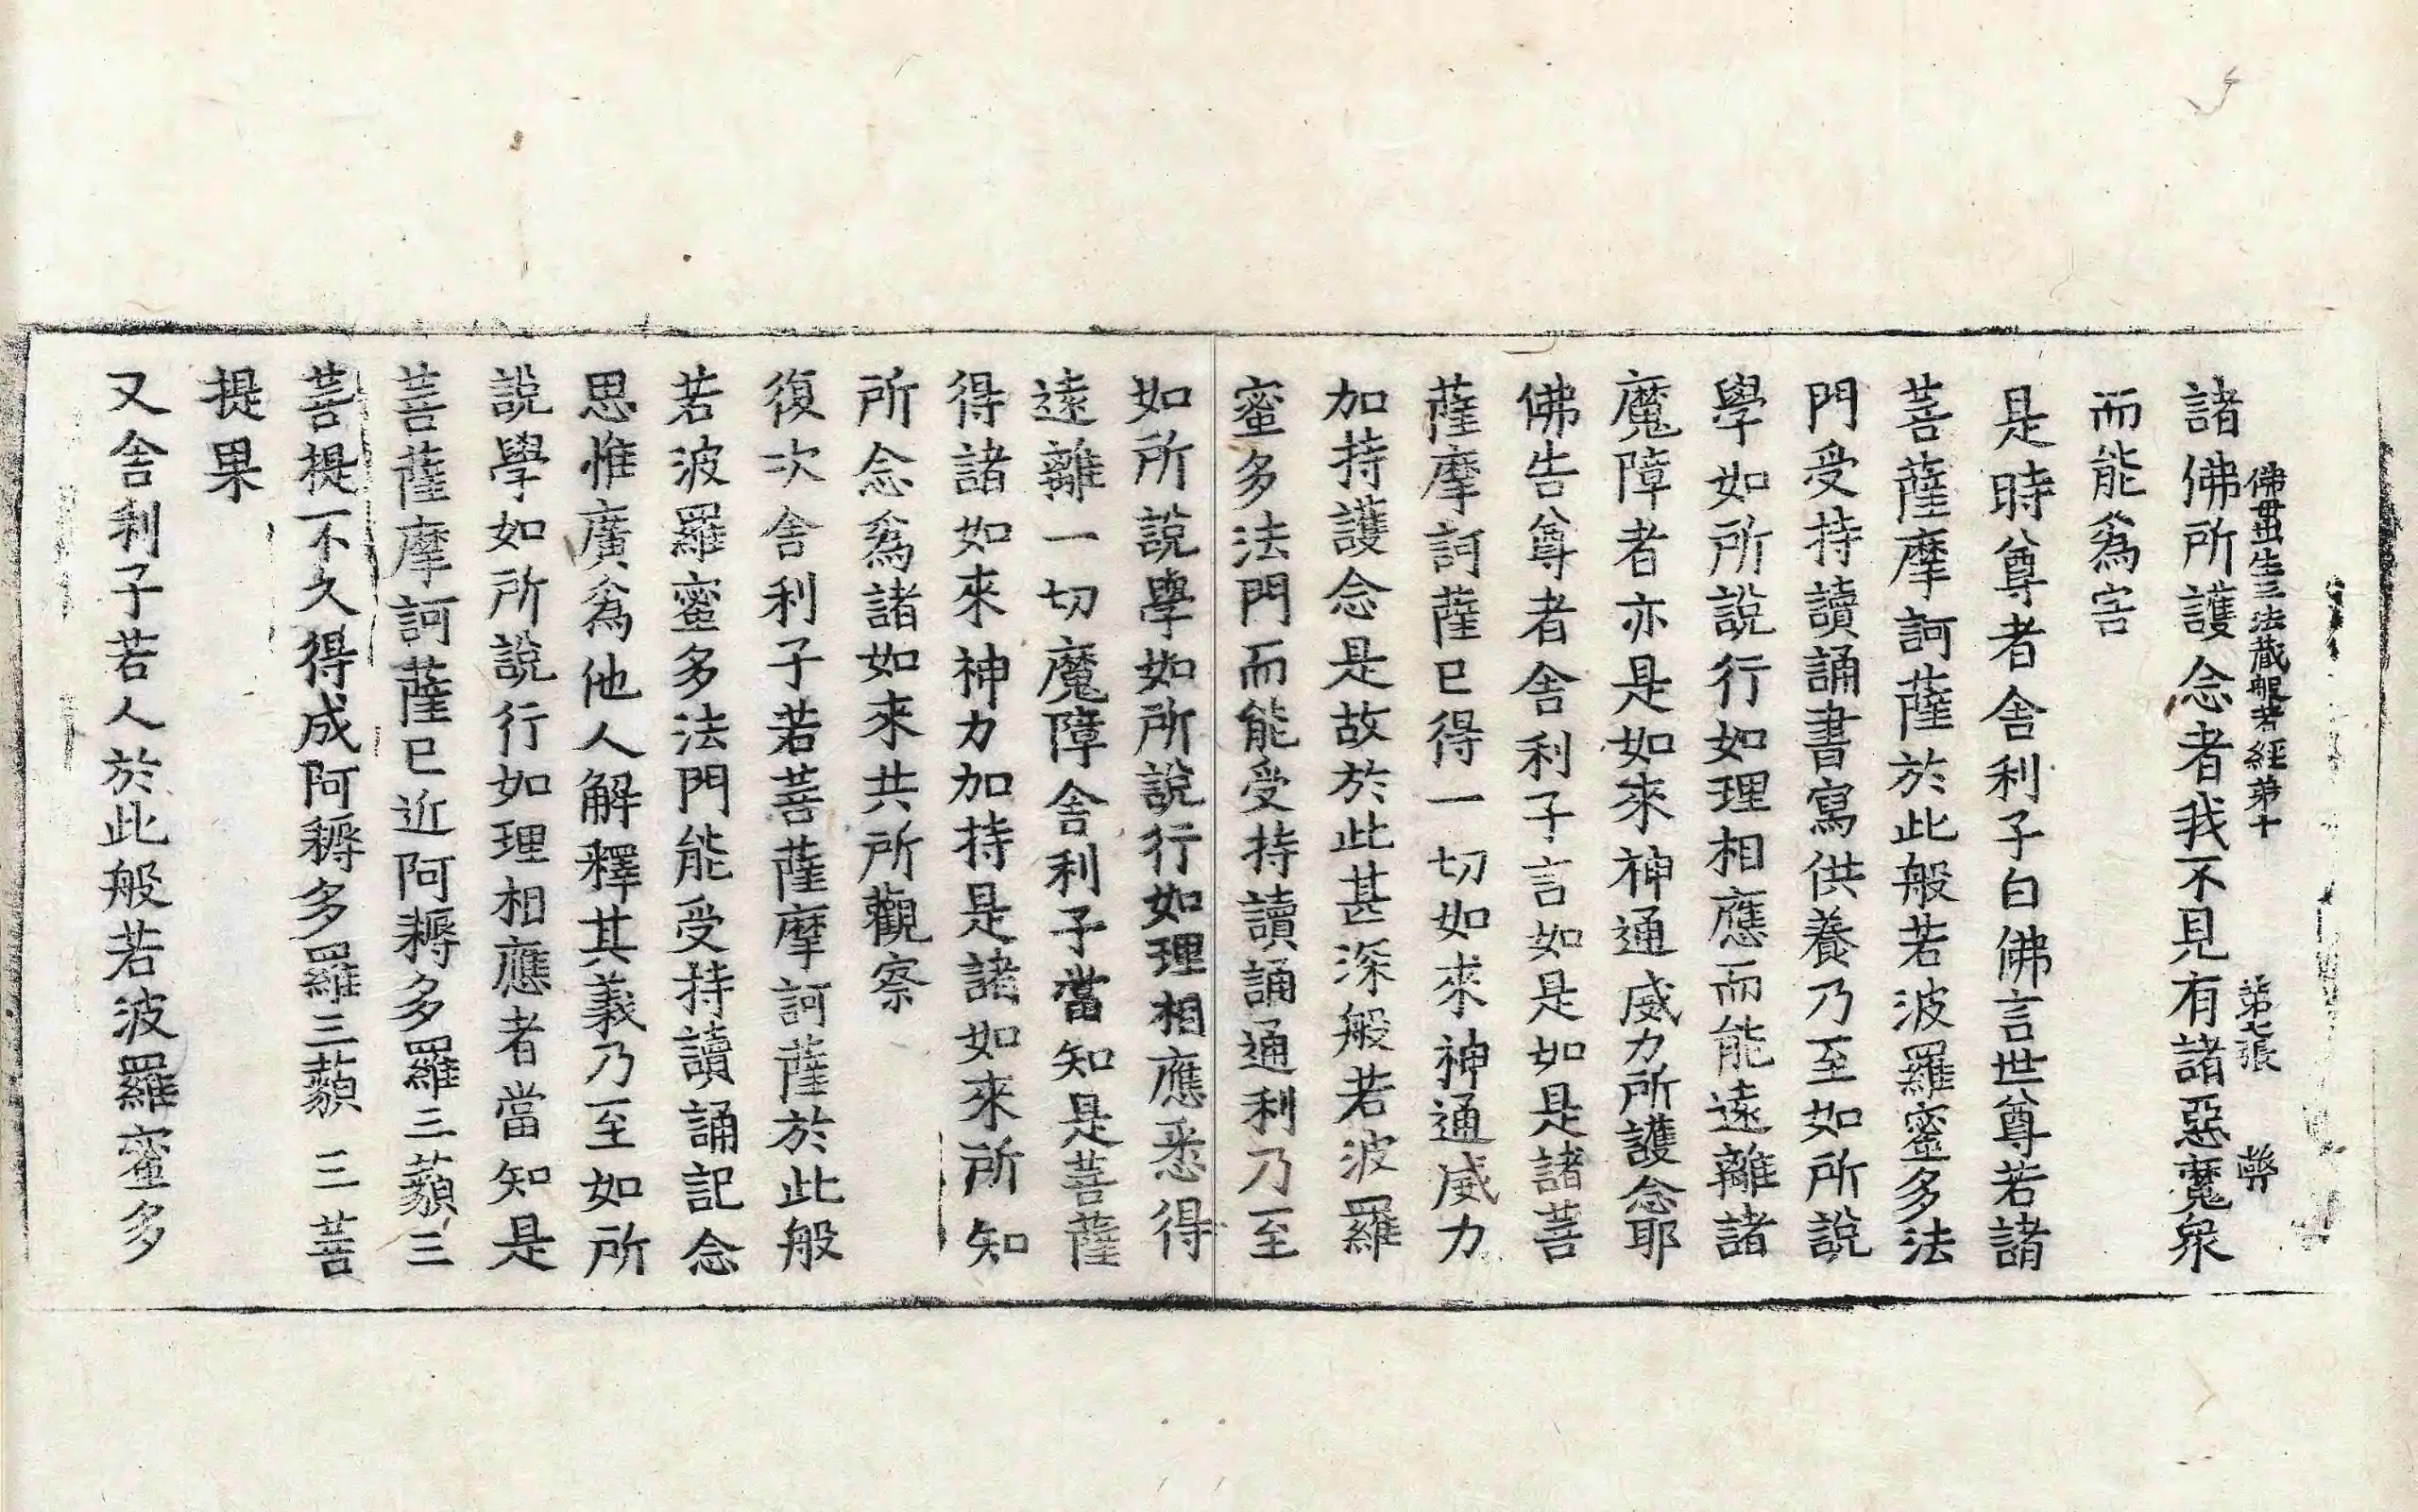 諸佛所護念者我不見有諸惡魔衆
佛母出生三法藏般若經第十 第七張
而能爲害
是時尊者舍利子白佛言世尊若諸
菩薩摩訶薩於此般若波羅蜜多法
門受持讀誦書寫供養乃至如所說
學如所說行如理相應而能遠離諸
魔障者亦是如來神通威力所護念耶
佛告尊者舍利子言如是如是諸菩
薩摩訶薩已得一切如來神通威力
加持護念是故於此甚深般若波羅
蜜多法門而能受持讀誦通利乃至
如所說學如所說行如理相應悉得
遠離一切魔障舍利子當知是菩薩
得諸如來神力加持是諸如來所知
所念爲諸如來共所觀察
復次舍利子若菩薩摩訶薩於此般
若波羅蜜多法門能受持讀誦記念
思惟廣爲他人解釋其義乃至如所
說學如所說行如理相應者當知是
菩薩摩訶薩已近阿耨多羅三藐三
菩提不久得成阿耨多羅三藐三菩
提果
又舍利子若人於此般若波羅蜜多